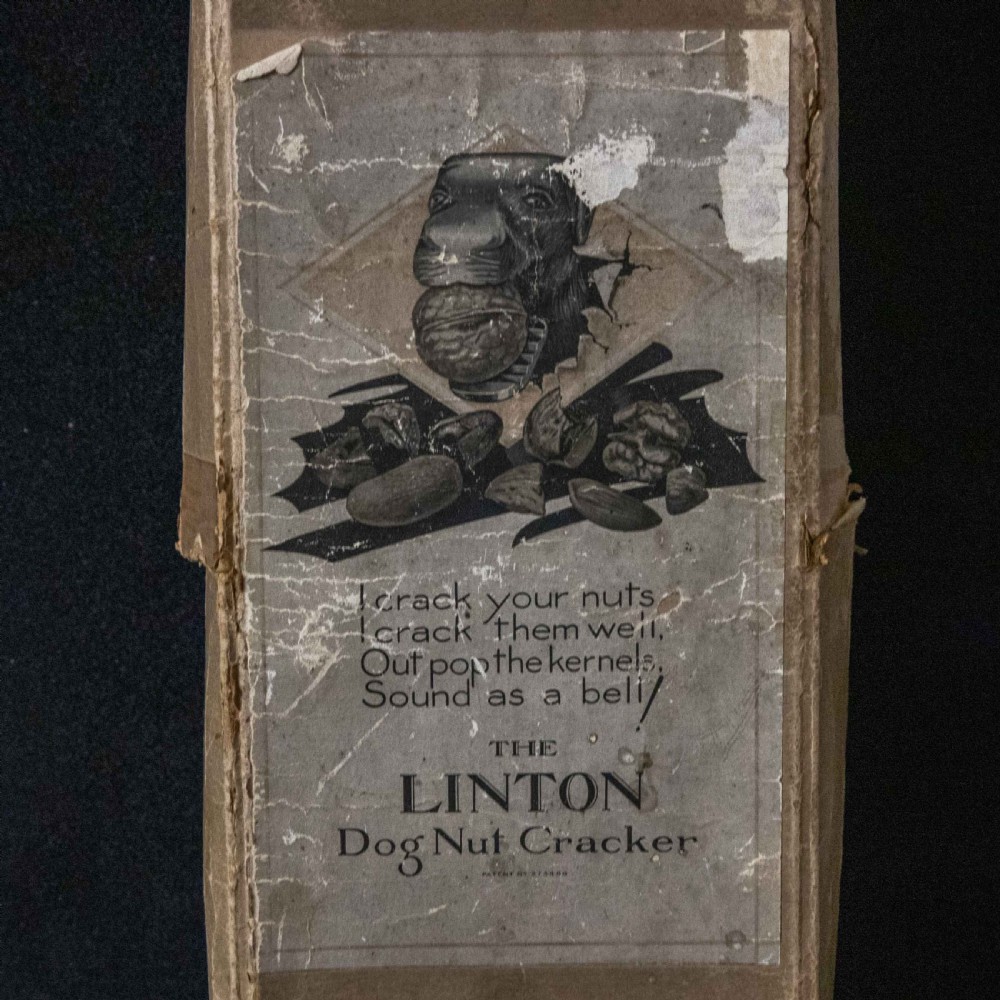 I crack your nuts,
I crack them well,
Out pop the kernels,
Sound as a bell!
THE
LINTON
Dog Nut Cracker